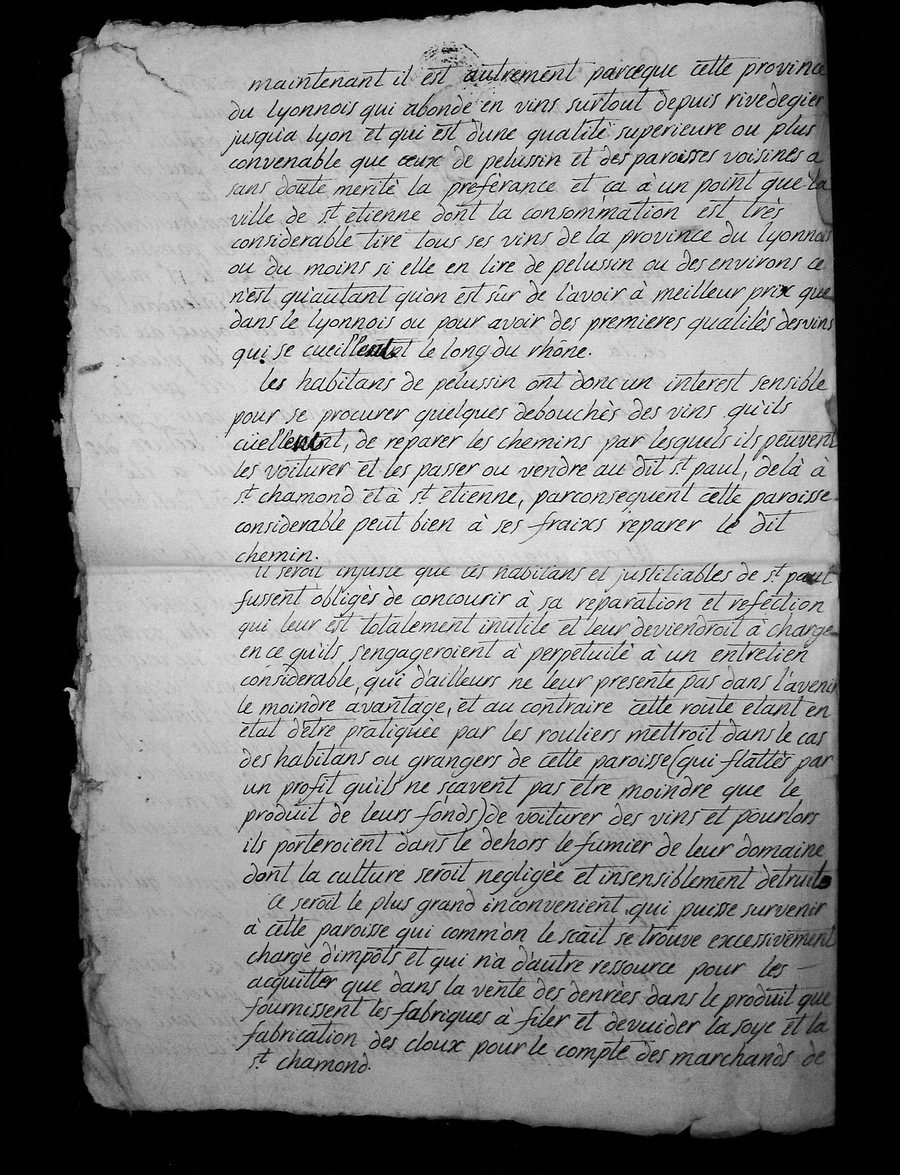 maintenant il est autrement parceque cette province
du lyonnois qui abonde en vins surtout depuis rivedegier
jusqua lyon et qui est dune qualité superieure ou plus
convenable que ceux de pelussin et des paroisses voisines a
sans doute merité la preférance et ca à un point que la
ville de st etienne dont la consommation est très
considerable tire tous ses vins de la province du lyonnois
ou du moins si elle en tire de pelussin ou des environs ce
n'est qu'autant qu'on est sûr de l'avoir à meilleur prix que
dans le lyonnois ou pour avoir des premieres qualités des vins
qui se cueillent le long du rhône.
les habitans de pelussin ont donc un interest sensible
pour se procurer quelques debouchés des vins qu'ils
cuëllent, de reparer les chemins par lesquels ils peuvent
les voiturer et les passer ou vendre au dit st paul, de là à
st chamond et à st etienne, parconsequent cette paroisse
considerable peut bien à ses fraixs reparer le dit
chemin.
il seroit injuste que les habitans et justiciables de st paul
fussent obligés de concourir à sa reparation et refection
qui leur est totalement inutile et leur deviendroit à charge
en ce qu'ils s'engageroient à perpetuité à un entretien
considerable, qui d'ailleurs ne leur presente pas dans l'avenir
le moindre avantage, et au contraire cette route etant en
etat detre pratiquée par les rouliers mettroit dans le cas
des habitans ou grangers de cette paroisse (qui flattés par
un profit qu'ils ne scavent pas être moindre que le
produit de leurs fonds) de voiturer des vins et pourlors
ils porteroient dans le dehors le fumier de leur domaine
dont la culture seroit negligée et insensiblement detruite
ce seroit le plus grand inconvenient qui puisse survenir
à cette paroisse qui comm'on le scait se trouve excessivement
chargé d'impôts et qui n'a d'autre ressource pour les
acquitter que dans la vente des denrées dans le produit que
fournissent les fabriques à filer et devuider la soye et la
fabrication des cloux pour le compte des marchands de
st chamond.